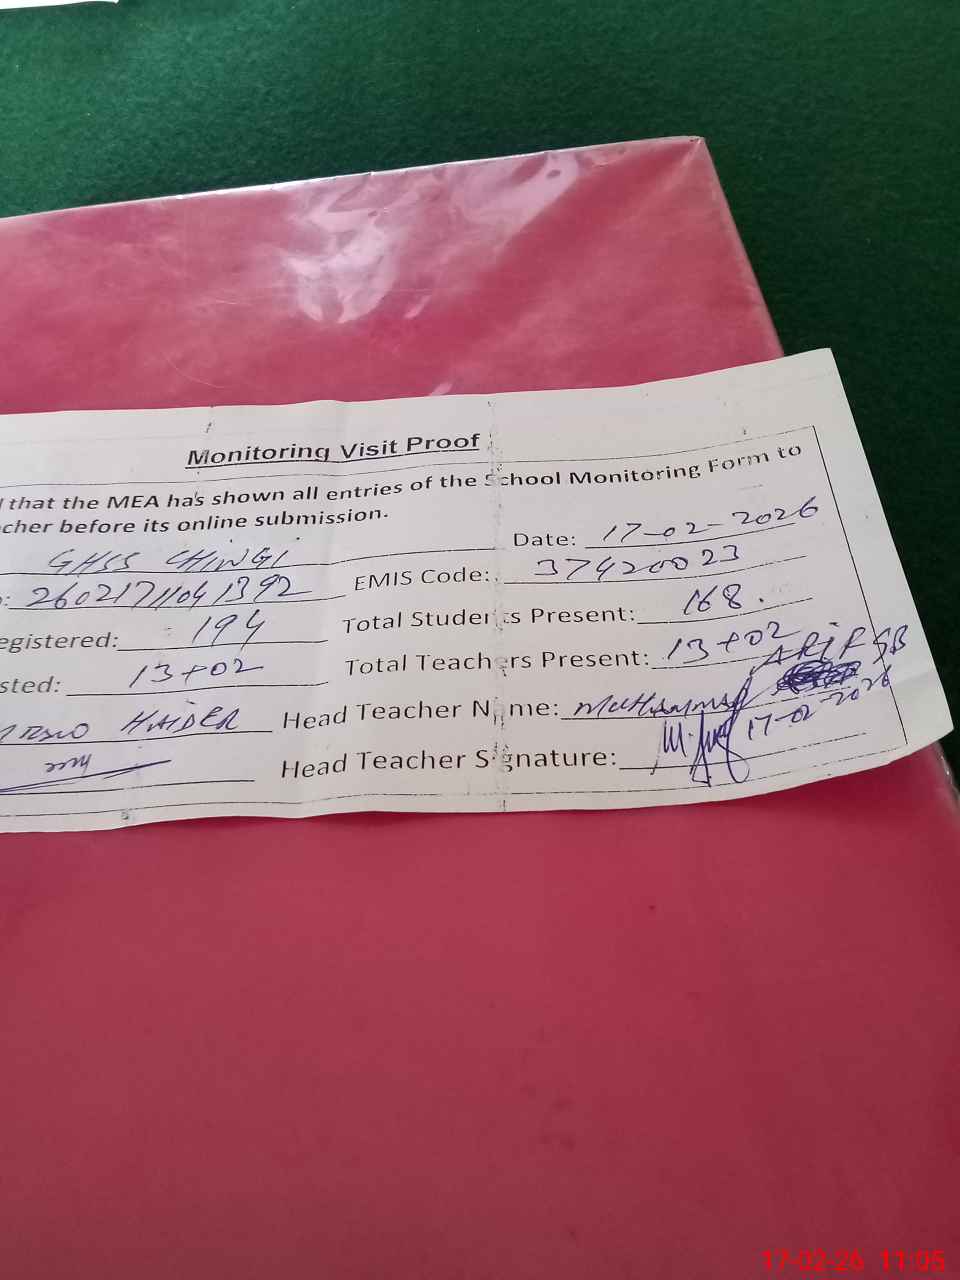 Monitoring Visit Proof
that the MEA has shown all entries of the School Monitoring Form to
cher before its online submission.
GHSS CHINGI Date: 17-02-2026
26021711041392 EMIS Code: 37420023
egistered: 194 Total Students Present: 168.
sted: 13+02 Total Teachers Present: 13+02
HAIDER Head Teacher Name: Muhammad ARIF SB
Head Teacher Signature: 17-02-2026
17-02-26 11:05